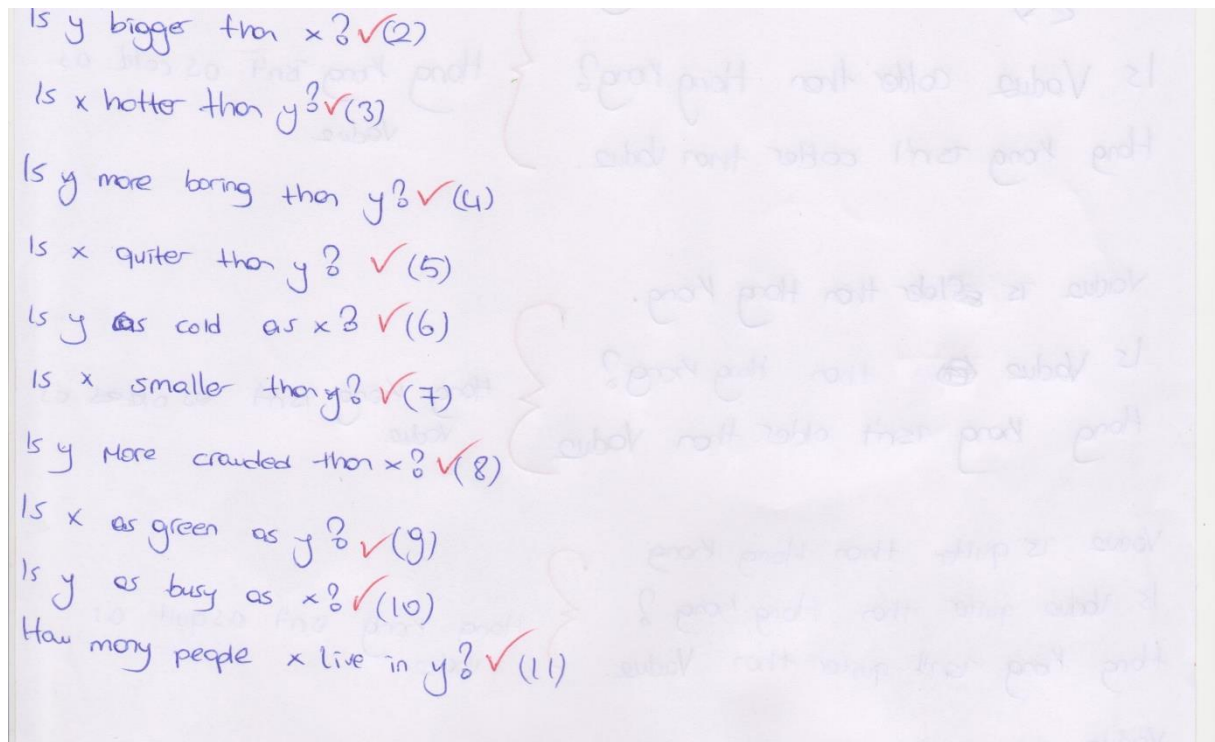 Is y bigger than x? ✓(2)
Is x hotter than y? ✓(3)
Is y more boring than y? ✓(4)
Is x quiter than y? ✓(5)
Is y as cold as x? ✓(6)
Is x smaller than y? ✓(7)
Is y More crowded than x? ✓(8)
Is x as green as y? ✓(9)
Is y as busy as x? ✓(10)
How many people x live in y? ✓(11)